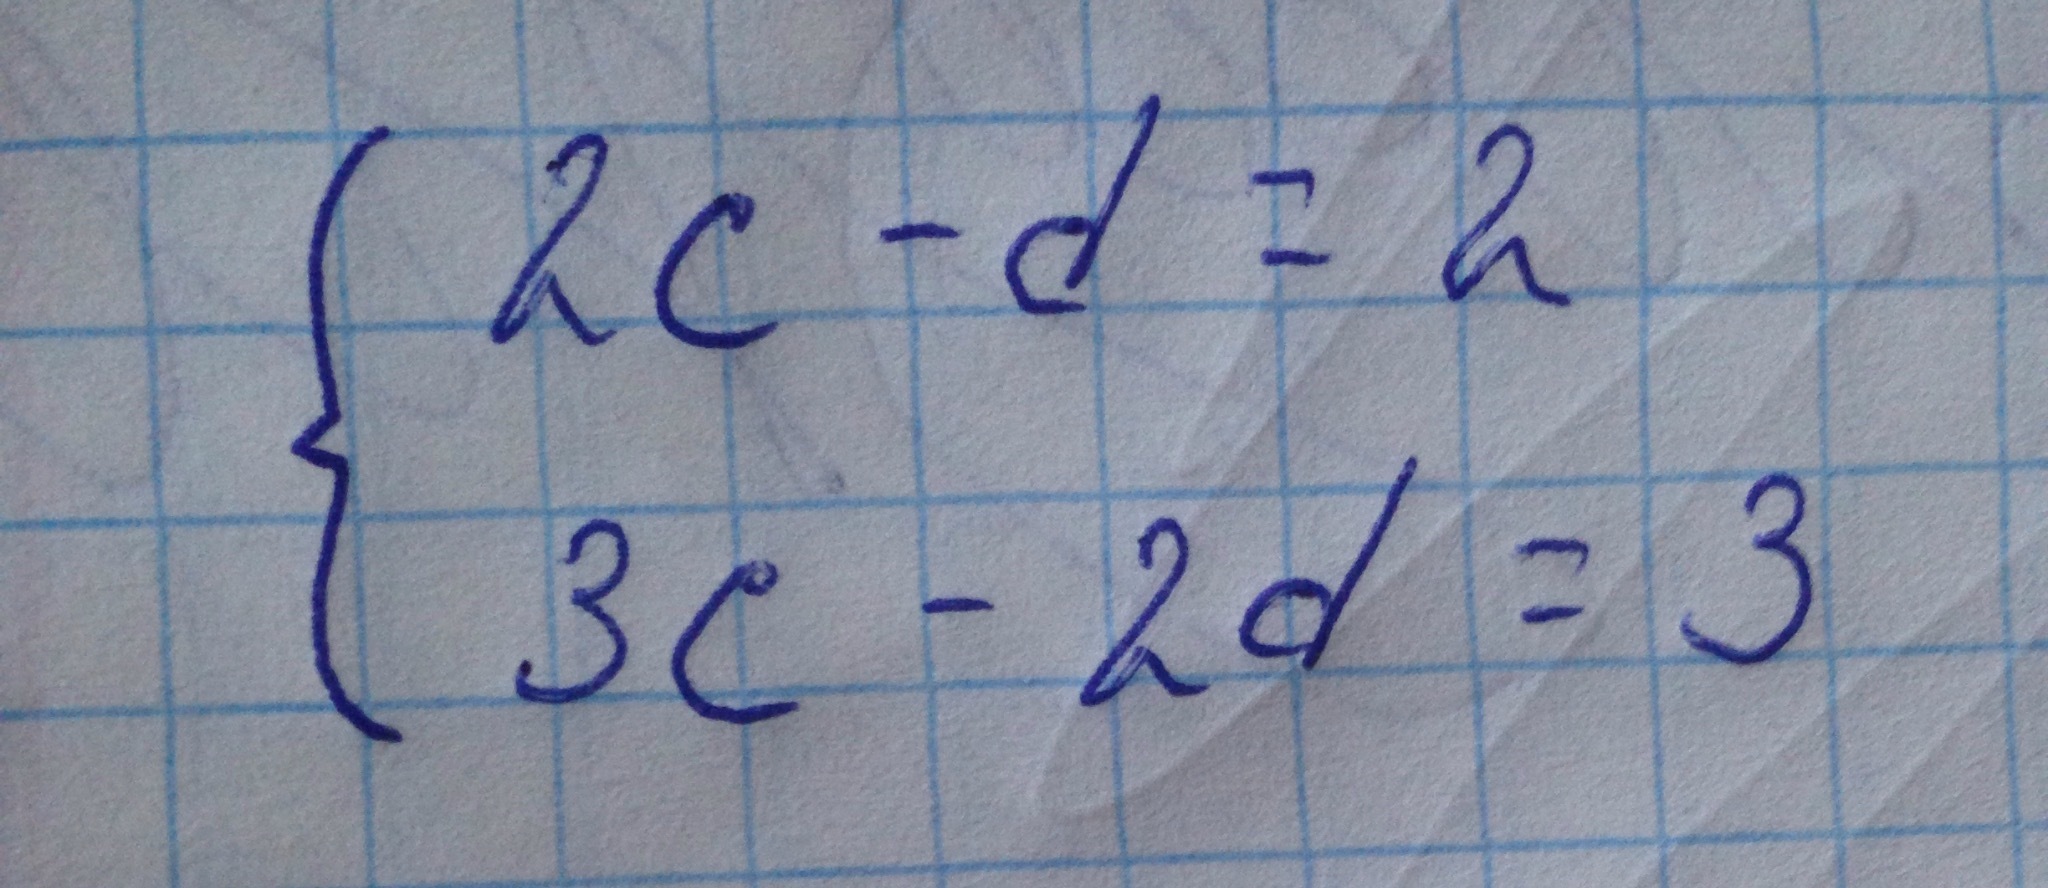 2c - d = 2
3c - 2d = 3